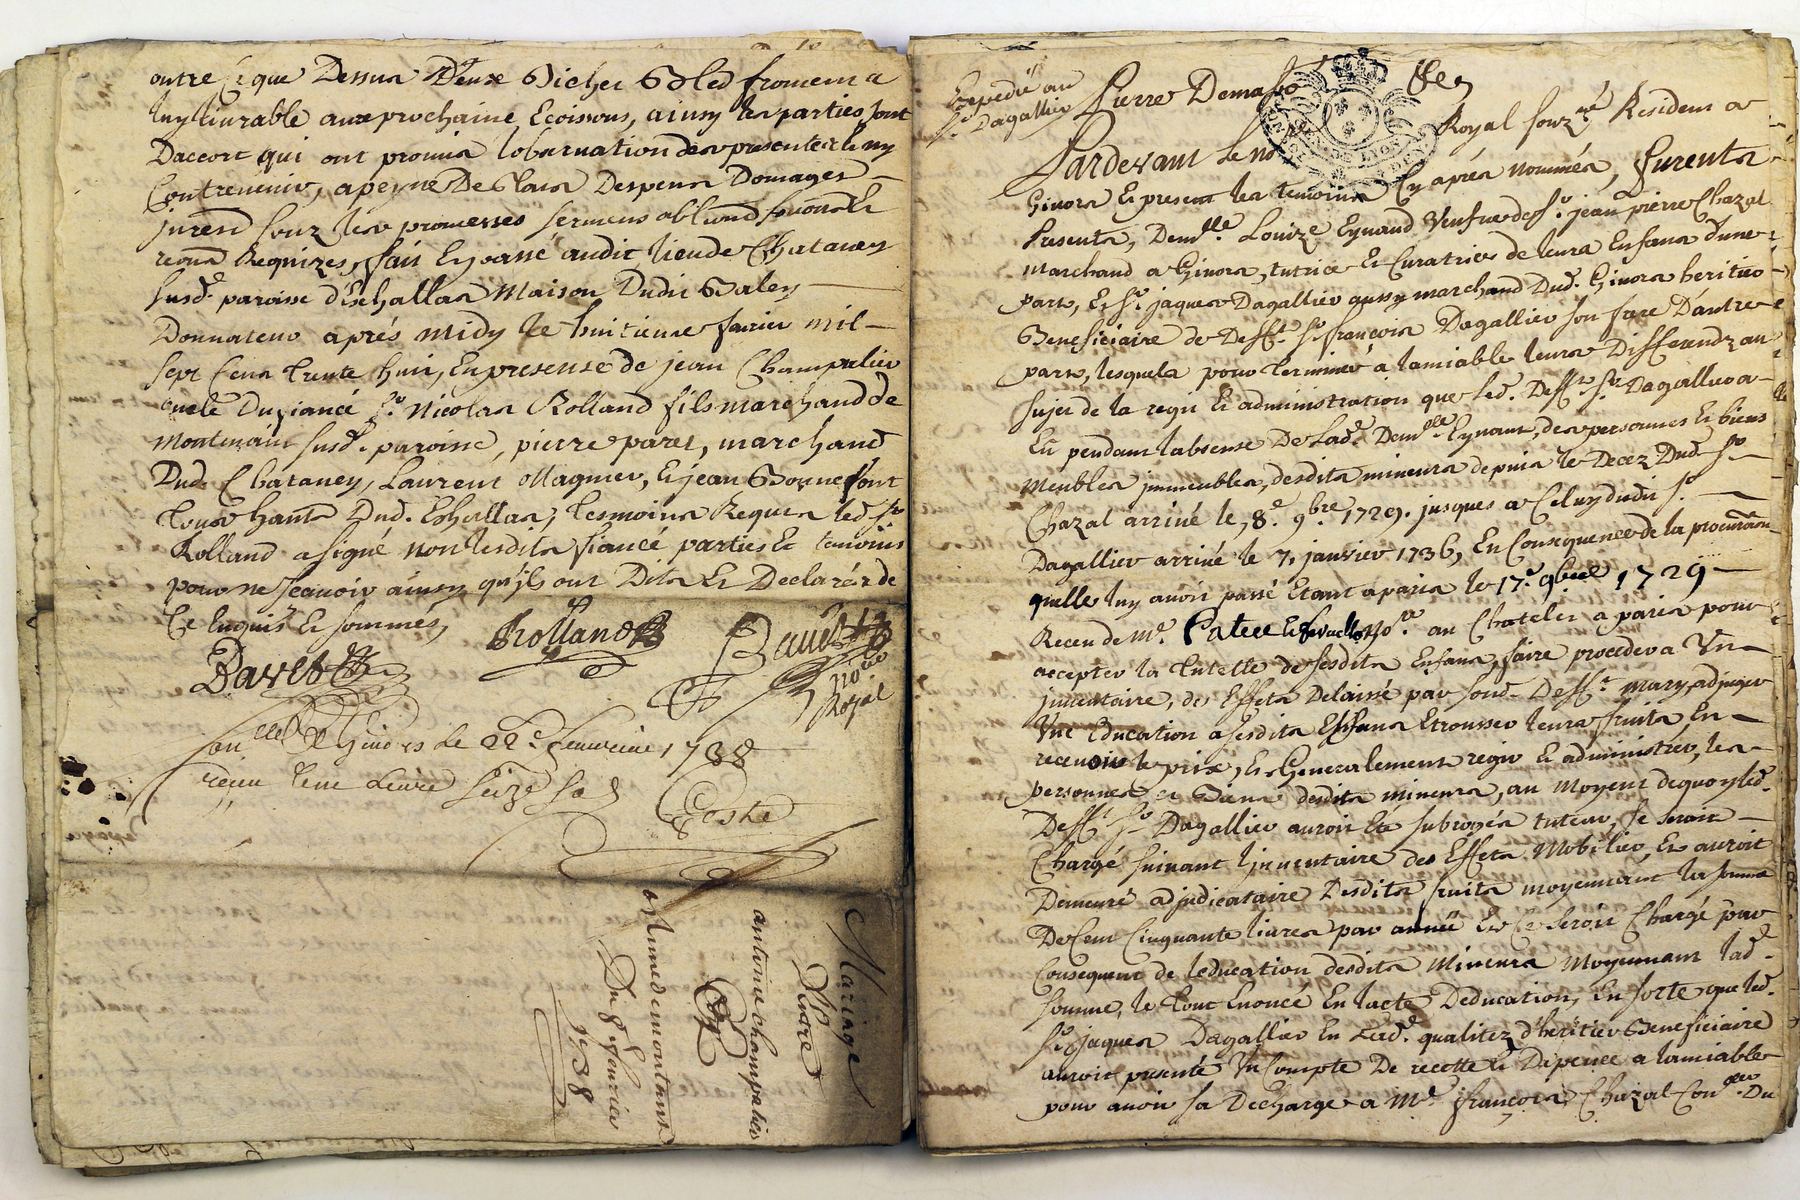 outre ce que Dessus Deux Bichet Bled froment a
luy livrable aux prochaine Ecoissons, ainsy les parties sont
Daccort qui ont promis lobservation des presentes le ny
Contrevenir, a peyne De tous Despens Domages
jnrest souz les promesses sermens
requizes, fait Et passé audit lieu de Chatanay
susd. paroisse d'Eschallas Maison Dudit Baley
Donnateur après midy le huitieme fevrier mil
sept cens trente huit, En presense de jean Champalier
oncle Du fiancé sr. Nicolas Rolland fils marchand de
Montmain susd. paroisse, pierre paret, marchand
Dud. Chatanay, Laurent Magnier, Et jean Bonnefont
tous hants Dud. Eshallas, tesmoins Requis led. sr
Rolland a signé non lesdits fiancé parties Et temoins
pour ne sçavoir ainsy qu'ils ont Dits Et Declarés de
Ce Enquis Et sommés,
Rolland
Davet
no.re
Royal
Con.llé a Givors le 22e fevrier 1738
reçeu une Livre seize s
Coste
Mariage
Entre
antoine champalier
Et
aymé de montant
Du 8 fevrier
1738
Expedié au
sr. Dagallier
Pierre Demas
Pardevant le no.re Royal souz.né Resident a
Givors Et present les temoins Cy après nommés, furent
Presents, Dem.lle Louize Eynaud Veufve de sr. jean pierre Chazal
marchand a Givors, tutrice Et Curatrice de leurs Enfans d'une
part, Et sr. jaques Dagallier aussy marchand Dud. Givors heritier
Beneficiaire de Deff.t sr. françois Dagallier son frere D'autre
part, lesquels pour terminer a lamiable leurs Differendz au
sujet de la regie Et administration que led. Deff.t sr. Dagallier a
Eu pendant labsense De lad. Dem.lle Eynaut, des personnes Et biens
Meubles jmmeubles, desdits mineurs depuis le Decez Dud. sr
Chazal arrivé le, 8.e 9bre 1729. jusques a Celuy dudit sr.
Dagallier arrivé le 7, janvier 1736, En Consequence de la procuraon
quelle luy avoit passé Etant a paris le 17e 9bre 1729
Receu de Me. no.re au Chatelet a paris pour
accepter la tutelle de sesdits Enfans, faire proceder a Un
jnventaire, des Effets Delaissé par sond. Deff.t Mary, adjuger
Une Education a sesdits Enfans Etrousser leurs fruits En
recevoir le prix, Et Generalement regir Et administrer, les
personnes et Biens desdits mineurs, au Moyent dequoy led.
Deff.t sr. Dagallier auroit Eté subrogés tuteur, se seroit
Chargé suivant Linventaire des Effets Mobilier, Et auroit
Demeuré adjudicataire Desdits fruits moyennant la somme
De Cent Cinquante livres par année Et Ce seroit Chargé par
Consequent de leducation desdits Mineurs Moyennant lad.
somme, le tout Enoncé En lacte Deducation, En sorte que led.
sr. jaques Dagallier En sad. qualitez d'heritier Beneficiaire
auroit presenté Un Compte De recette Et Depence a lamiable
pour avoir sa Decharge a Me. françois Chazal Con.ller Du